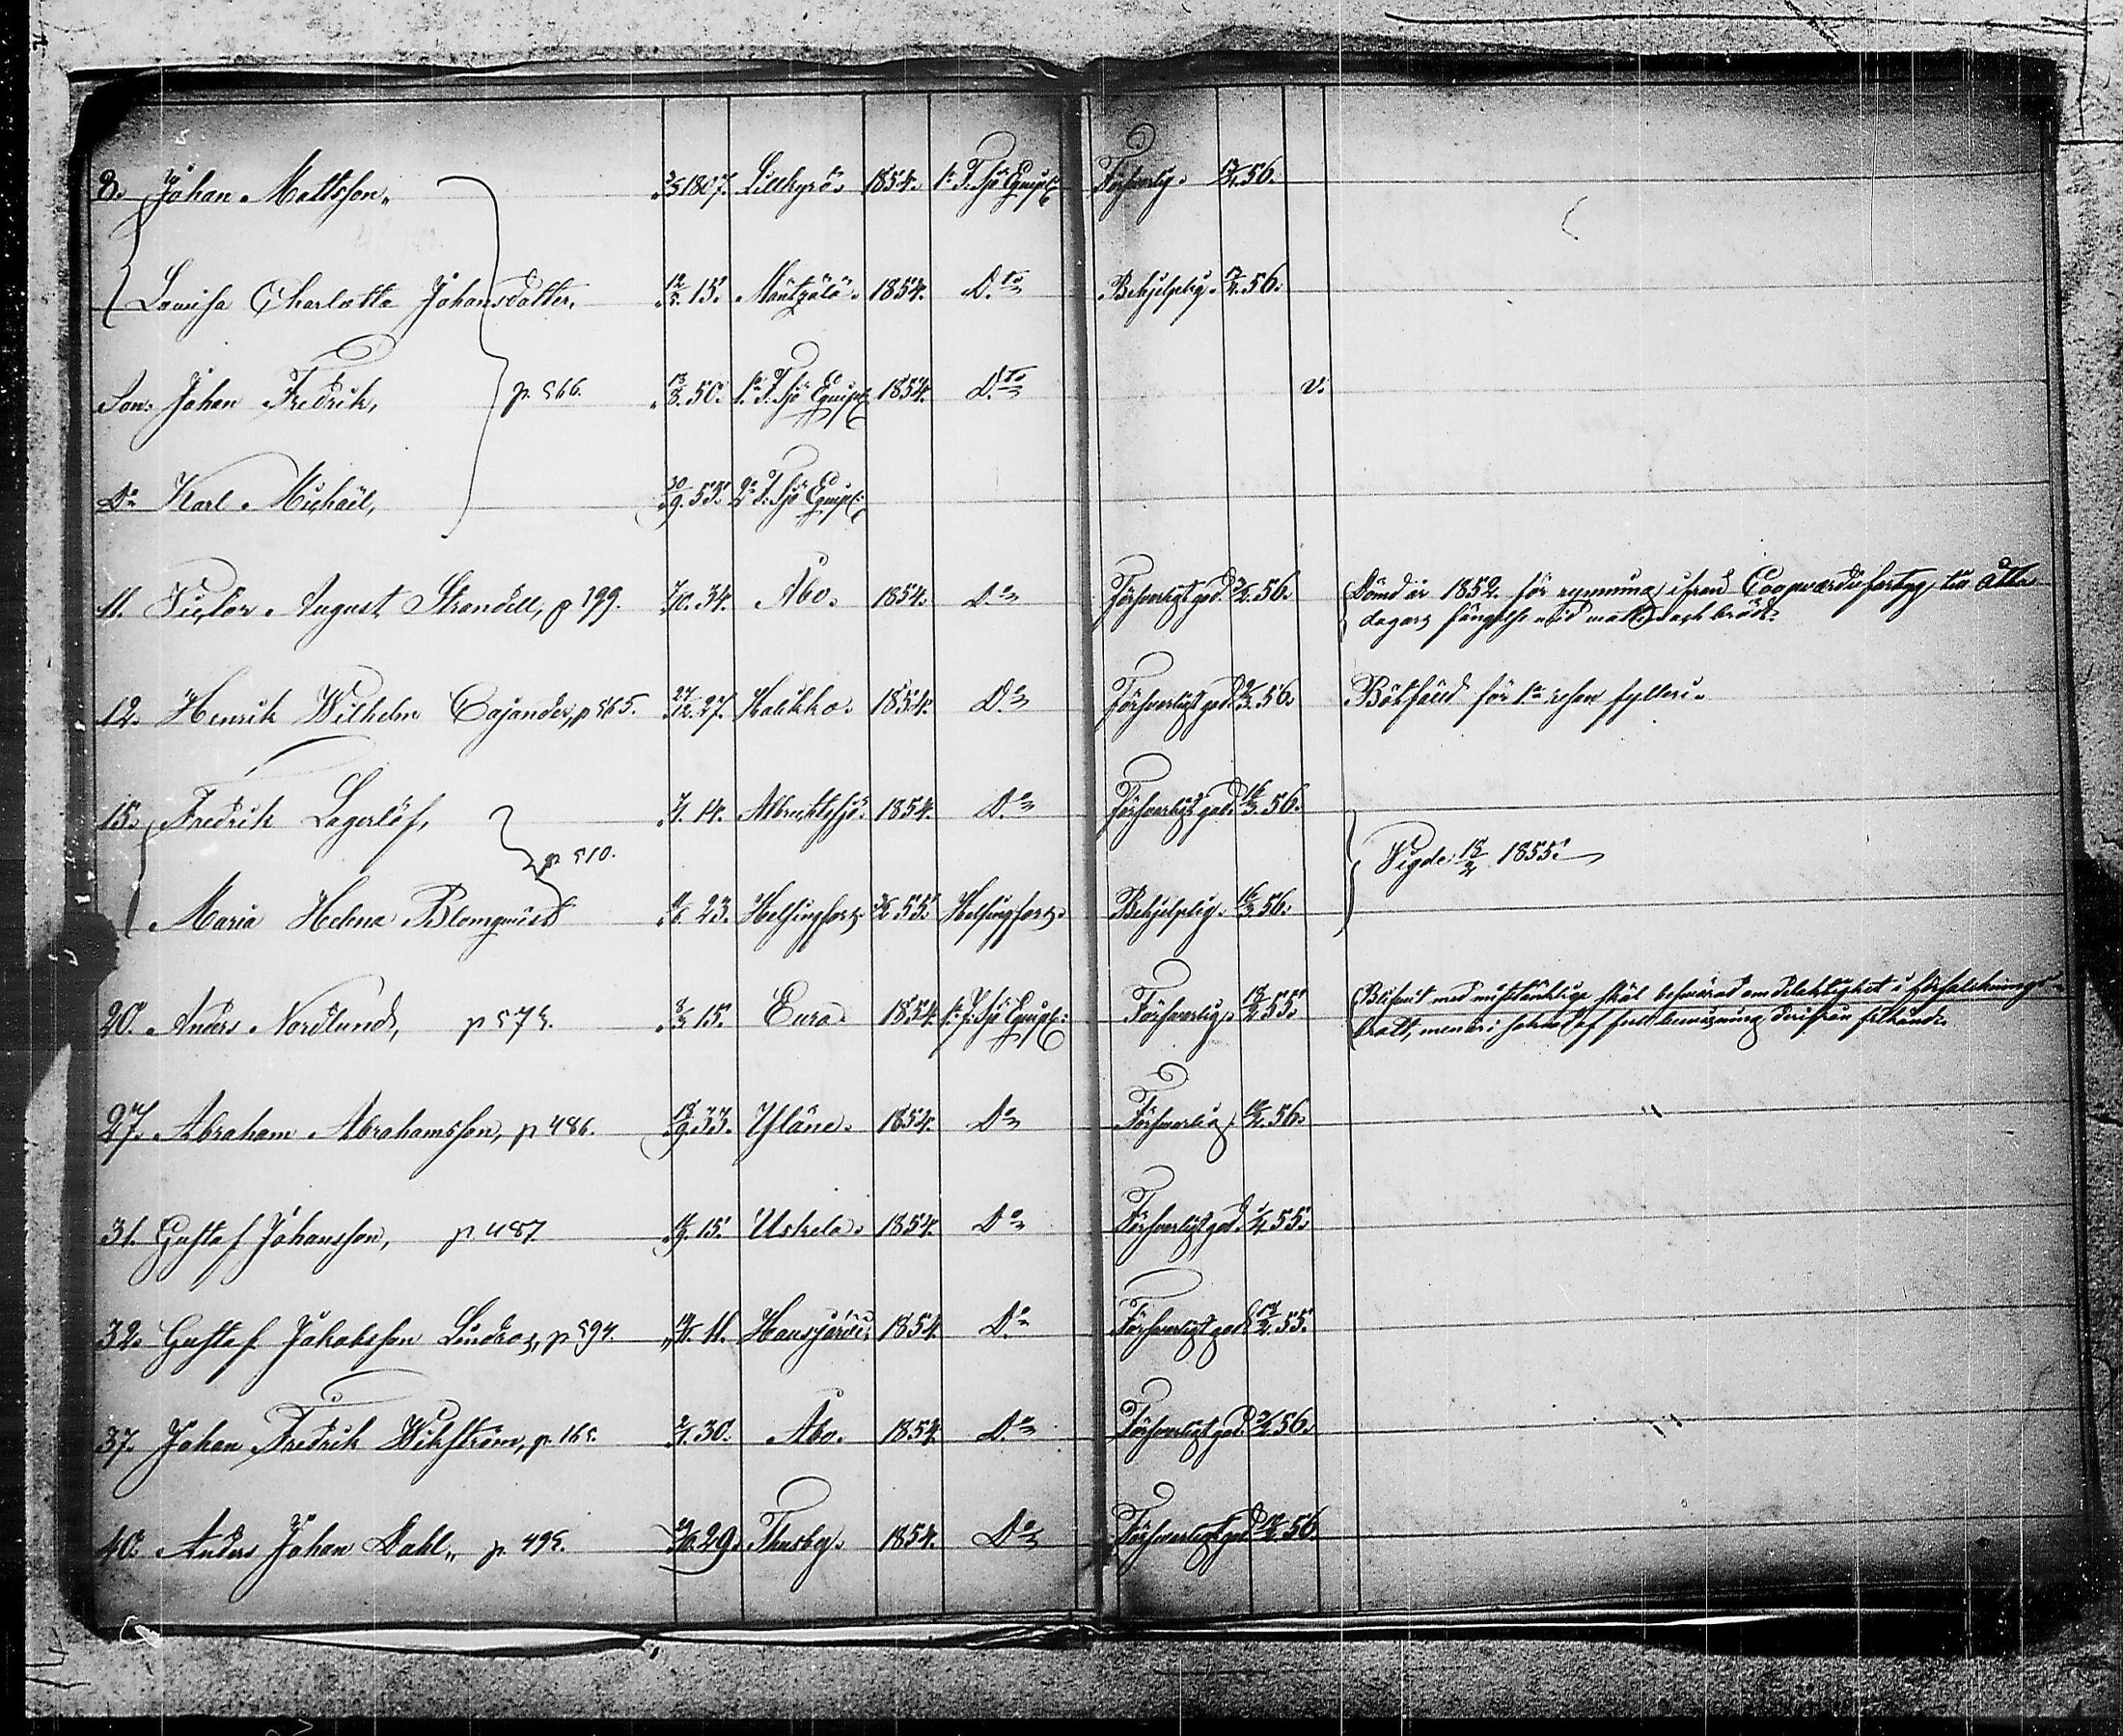 8. Johan Mattsson, 1807. Lillkyrö. 1854. 1:a F. Sjö Equip: Försvarlig. 56.
Lovisa Charlotta Johansdotter, 12/5. 15. Mäntzälä. 1854. D:to Behjelplig. 56.
Son: Johan Fredrik, p. 566. 13/8. 50. 1:a F. Sjö Equip: 1854. D:to v.
D:o Karl Michaël, 30/9. 53. 2:a F. Sjö Equip:
11. Victor August Strandell, p 199. 7/10. 34. Åbo. 1854. D:o Försvarligt god. 56. Dömd år 1852 för rymning ifrån Coopvardiefartyg, till åtta
dagars fängelse vid vatten och bröd.
12. Henrik Wilhelm Cajander, p 565. 27/12. 27. Halikko. 1854. D:o Försvarligt god. 56. Bötfäld för 1:a resan fylleri.
15. Fredrik Lagerlöf, 14. Albrektssjö. 1854. D:o Försvarligt god. 16/3. 56.
p 510. Vigde 18/2 1855.
Maria Helena Blomqvist 23. Helsingfors. 55. Helsingfors. Behjelplig. 16/3 56.
20. Anders Nordlund, p 575. 15. Eura. 1854. 1:a F. Sjö Equip: Försvarlig. 55. Blifvit med misstänklige skäl besvärad om delaktighet i förfalsknings-
brott, men i saknad af full bevisning derifrån frikänd.
27. Abraham Abrahamsson, p 486. 18/9. 33. Yläne. 1854. D:o Försvarlig. 56. "
31. Gustaf Johansson, p 487. 15. Uskela. 1854. D:o Försvarligt god. 55.
32. Gustaf Jakobsson Lindros, p 594. 11. Hausjärvi. 1854. D:o Försvarligt god. 55.
37. Johan Fredrik Wikström, p. 165. 30. Åbo. 1854. D:o Försvarligt god. 56. "
40. Anders Johan Dahl, p. 495. 29. Thusby. 1854. D:o Försvarligt god. 56.